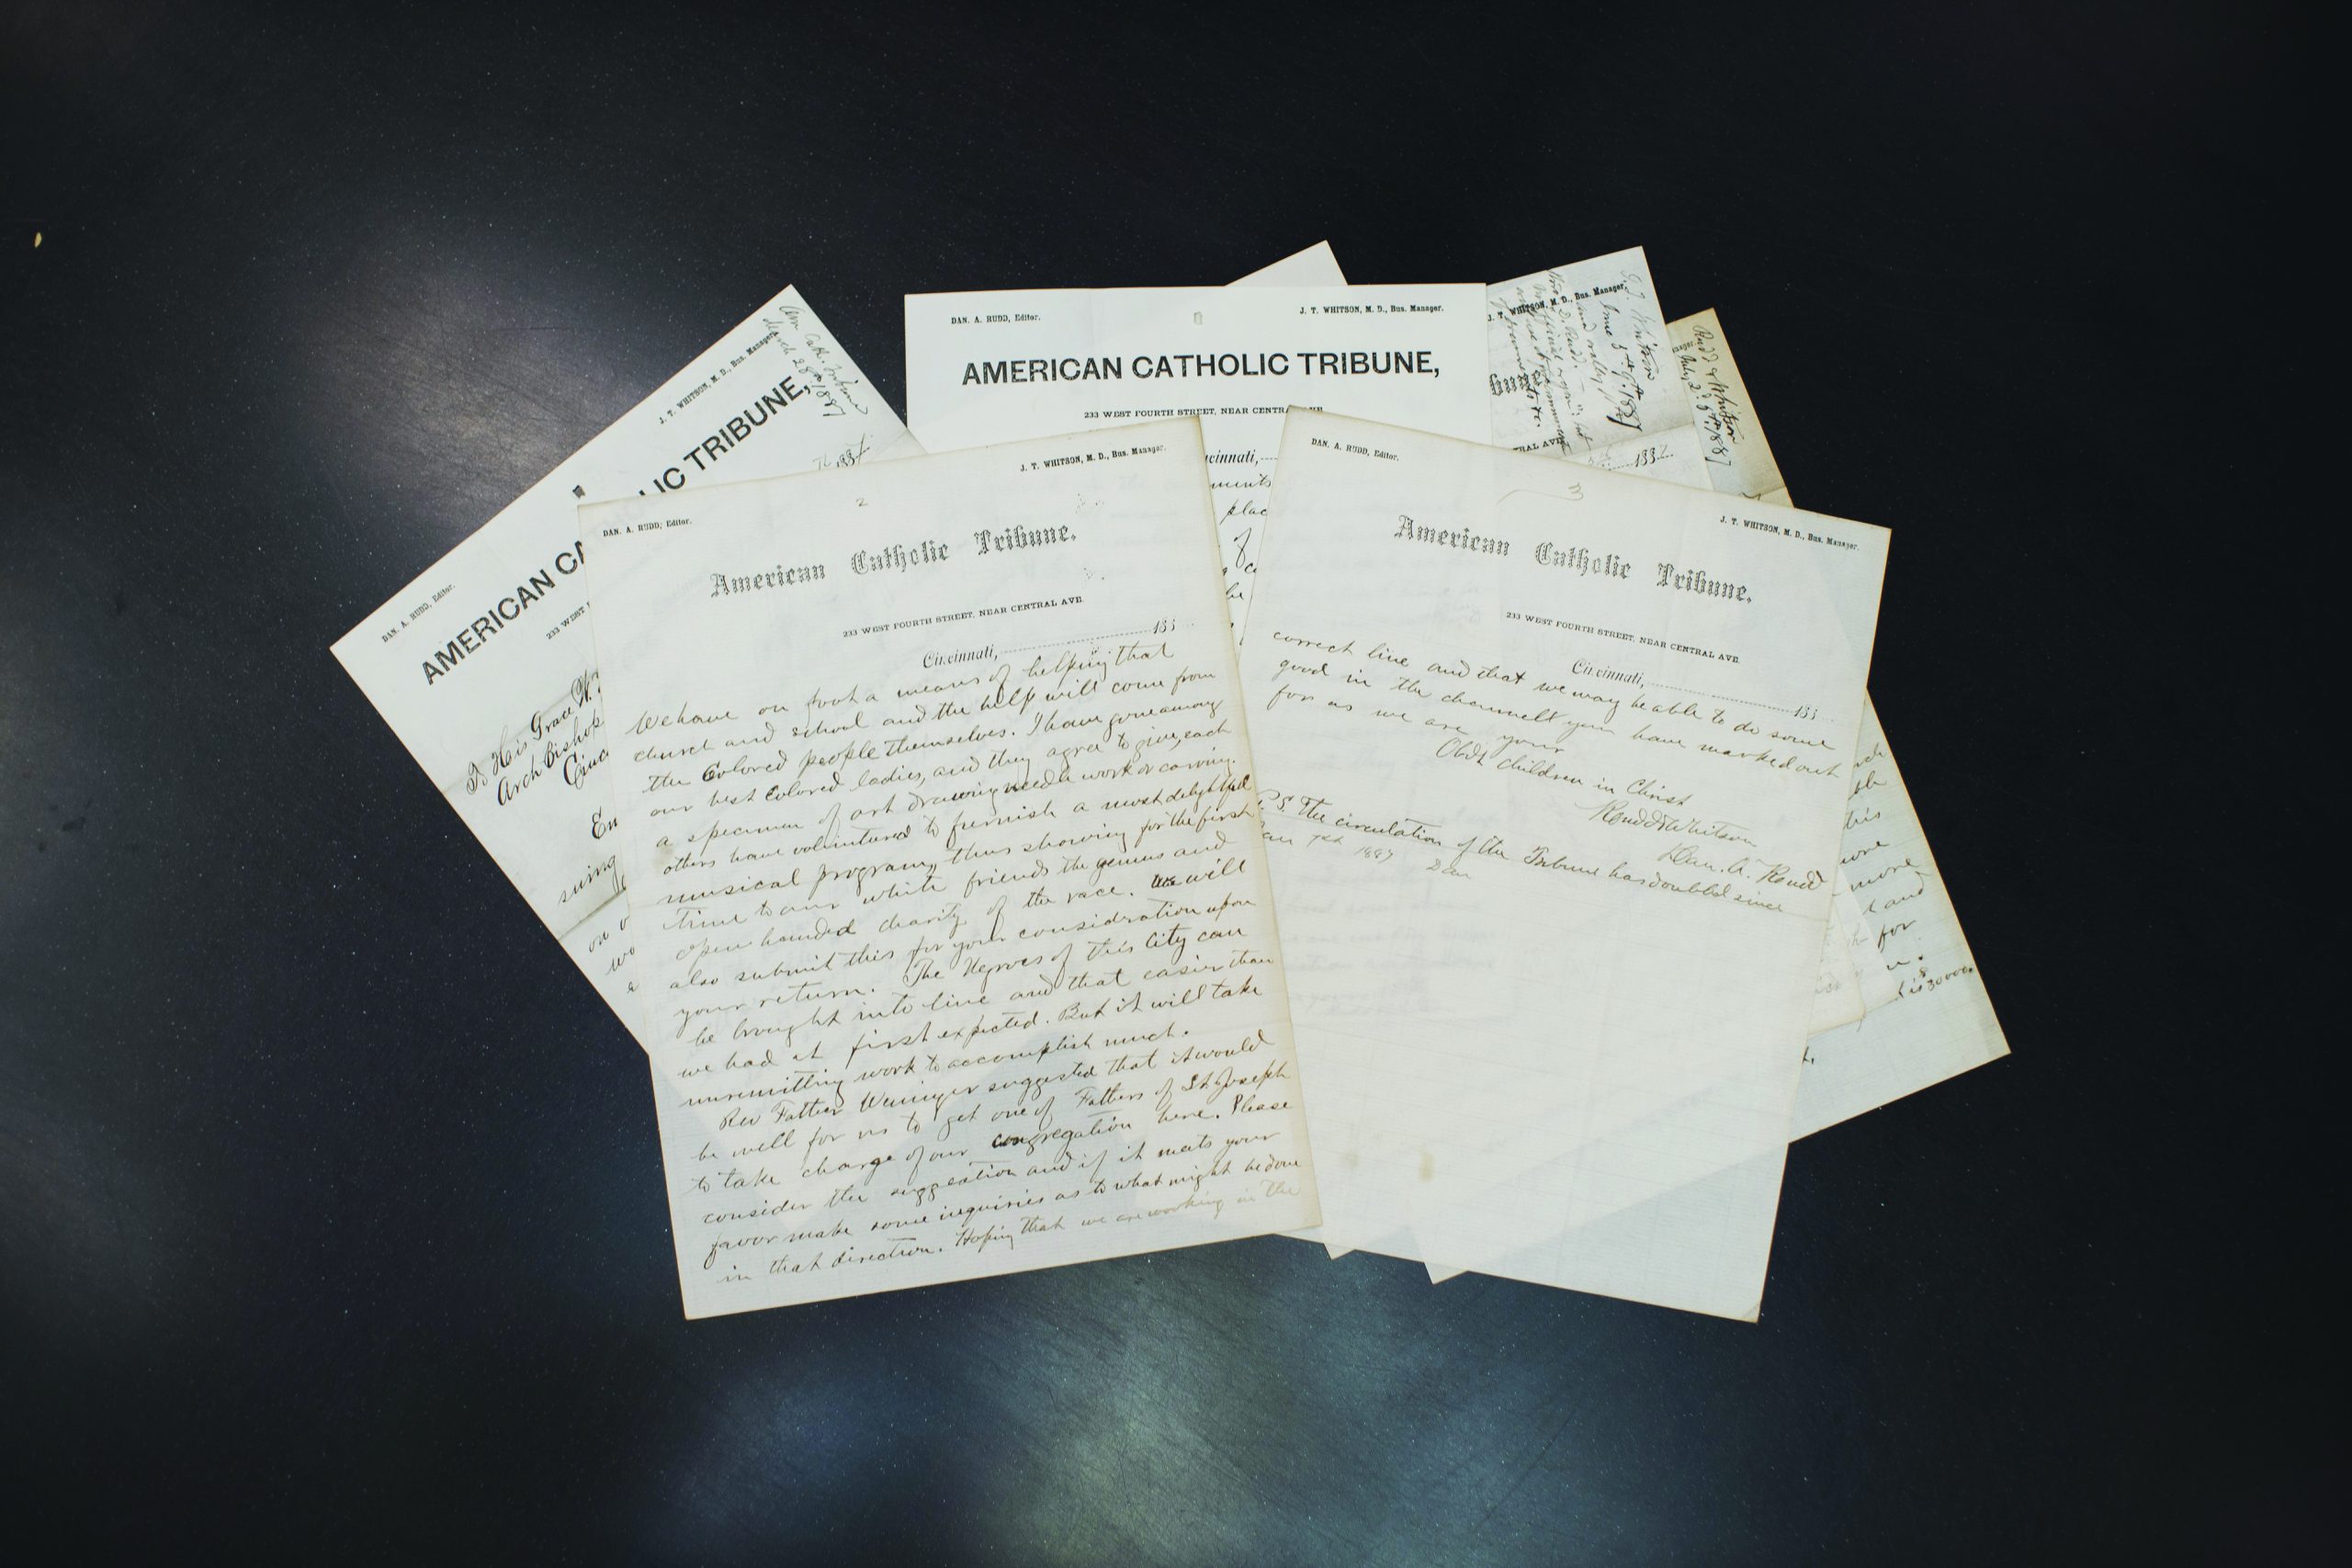 DAN. A. RUDD, Editor.
J. T. WHITSON, M. D., Bus. Manager.
AMERICAN CATHOLIC TRIBUNE,
233 WEST FOURTH STREET, NEAR CENTRA
cinnati,
ments
plac
be
DAN. A. RUDD, Editor.
J. T. WHITSON, M. D., Bus. Manager.
Am. Cath. Tribune
March 28th 1887
AMERICAN CA
LIC TRIBUNE,
233 WEST
188
To His Grace W.
Arch Bishop
Cinc
En
suring
on
wo
a
J. T. WHITSON, M. D., Bus. Manager.
June 3rd, 1887
bune
RAL AVE
188
Rudd & Whitson
July 23rd 1887
nager.
DAN. A. RUDD, Editor.
J. T. WHITSON, M. D., Bus. Manager.
2
American Catholic Tribune.
233 WEST FOURTH STREET, NEAR CENTRAL AVE.
Cincinnati, 188
We have on foot a means of helping that
church and school and the help will come from
the Colored people themselves. I have gone among
our best Colored ladies, and they agree to give, each
a specimen of art drawing needle work or carving.
others have voluntured to furnish a most delightful
musical program, thus showing for the first
time to our white friends the genius and
open handed charity of the race. We will
also submit this for your consideration upon
your return. The Negroes of this City can
be brought into line and that easier than
we had at first expected. But it will take
unremitting work to accomplish much.
Rev Father Weninger suggested that it would
be well for us to get one of Fathers of St Joseph
to take charge of our congregation here. Please
consider the suggestion and if it meets your
favor make some inquiries as to what might be done
in that direction. Hoping that we are working in the
DAN. A. RUDD, Editor.
J. T. WHITSON, M. D., Bus. Manager.
3
American Catholic Tribune.
233 WEST FOURTH STREET, NEAR CENTRAL AVE.
Cincinnati, 188
correct line and that we may be able to do some
good in the channell you have marked out
for us we are your
Obdt children in Christ
Rudd & Whitson
Dan. A. Rudd
P.S. The circulation of the Tribune has doubled since
Jan 1st 1887
Dan
this
more
and
for
is 30000.